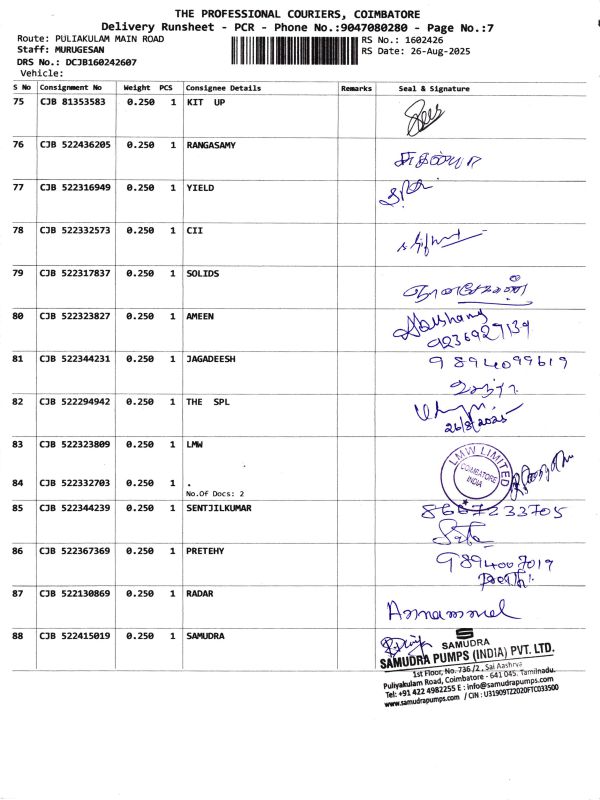 THE PROFESSIONAL COURIERS, COIMBATORE
Delivery Runsheet - PCR - Phone No.:9047080280 - Page No.:7
Route: PULIAKULAM MAIN ROAD
RS No.: 1602426
Staff: MURUGESAN
RS Date: 26-Aug-2025
DRS No.: DCJB160242607
Vehicle:
S No Consignment No Weight PCS Consignee Details Remarks Seal & Signature
75 CJB 81353583 0.250 1 KIT UP
76 CJB 522436205 0.250 1 RANGASAMY
77 CJB 522316949 0.250 1 YIELD
78 CJB 522332573 0.250 1 CII
79 CJB 522317837 0.250 1 SOLIDS
80 CJB 522323827 0.250 1 AMEEN
9236927139
81 CJB 522344231 0.250 1 JAGADEESH 9894099619
82 CJB 522294942 0.250 1 THE SPL
26/8/2025
83 CJB 522323809 0.250 1 LMW
LMW LIMITED
COIMBATORE
INDIA
84 CJB 522332703 0.250 1 .
No.Of Docs: 2
85 CJB 522344239 0.250 1 SENTJILKUMAR 8667233705
86 CJB 522367369 0.250 1 PRETEHY 9894007019
87 CJB 522130869 0.250 1 RADAR
88 CJB 522415019 0.250 1 SAMUDRA
SAMUDRA
SAMUDRA PUMPS (INDIA) PVT. LTD.
1st Floor, No. 736 /2 , Sai Aashrva
Puliyakulam Road, Coimbatore - 641 045. Tamilnadu.
Tel: +91 422 4982255 E : info@samudrapumps.com
www.samudrapumps.com / CIN : U31909TZ2020FTC033500